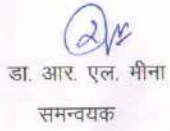 डा. आर. एल. मीना
समन्वयक